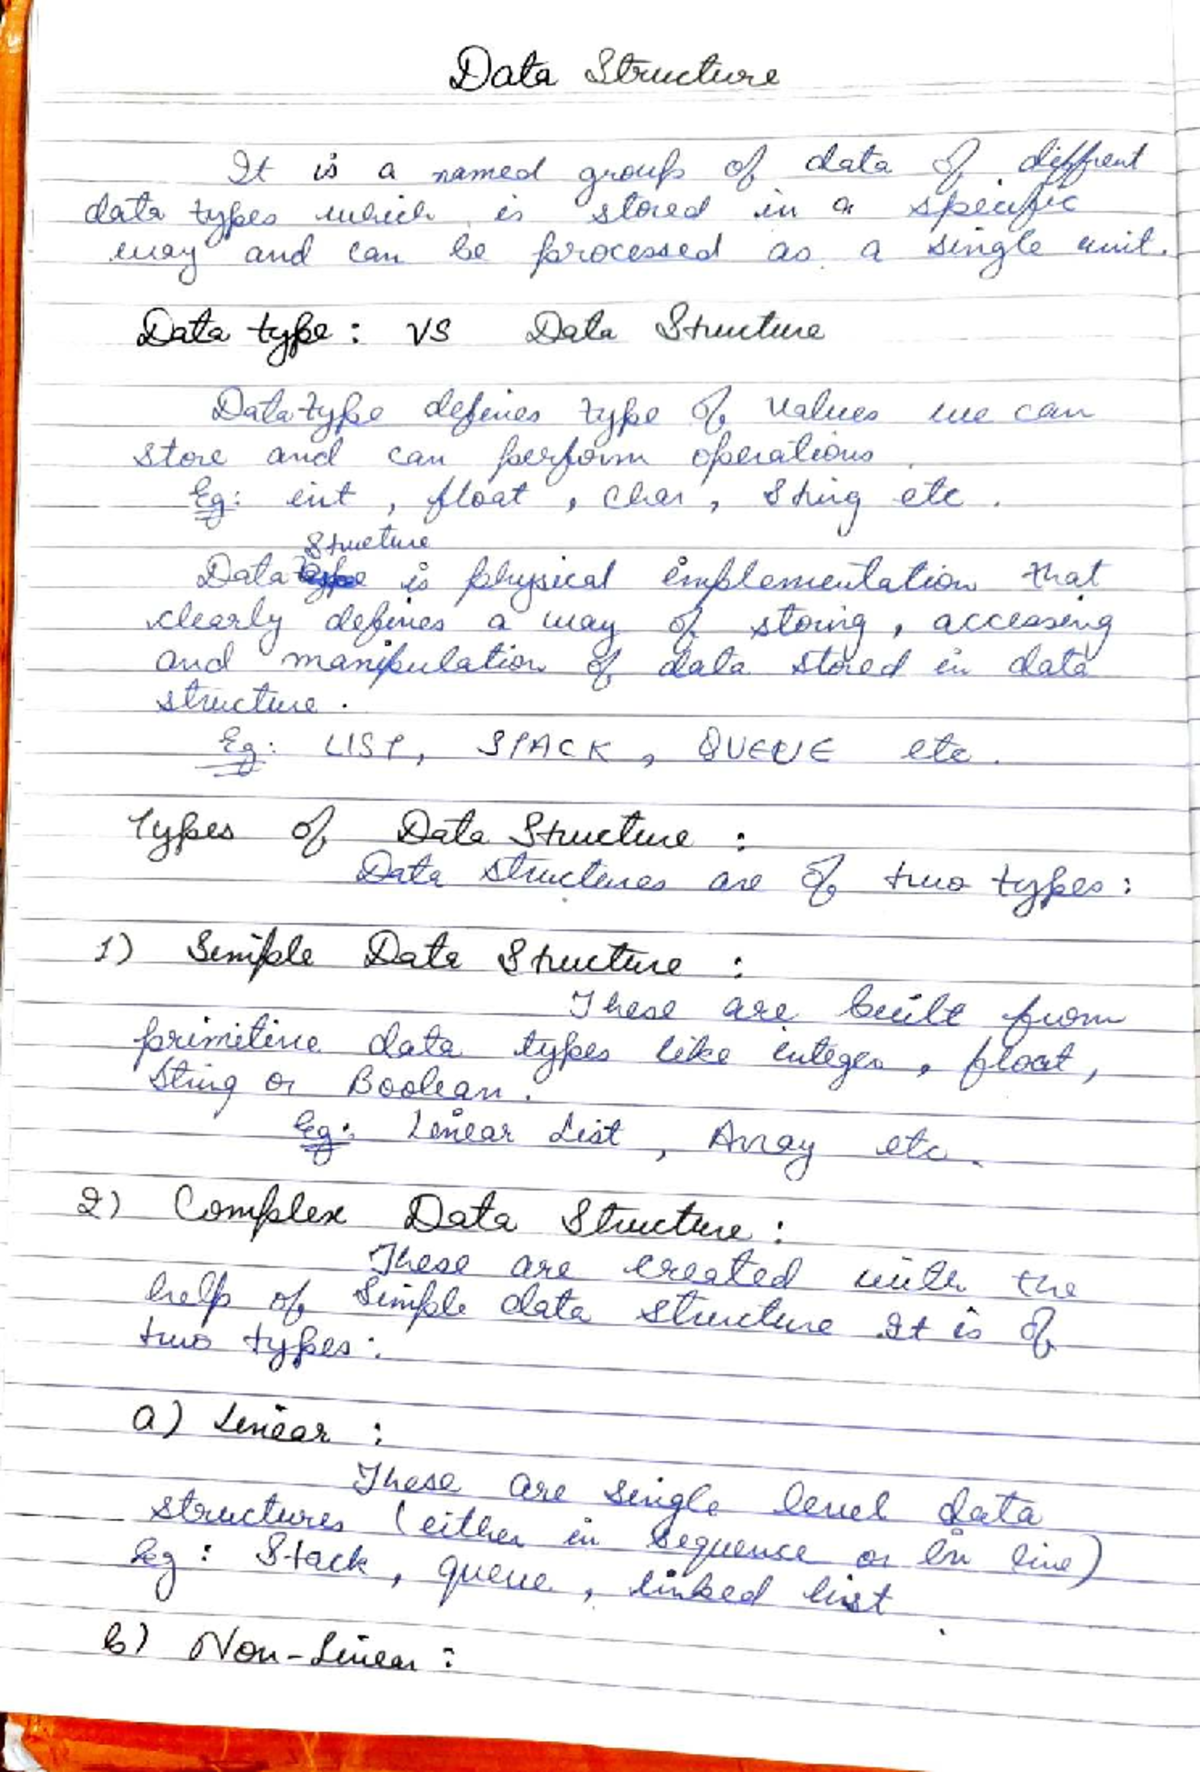 Data Structure
It is a named group of data of diffrent
data types which is stored in a specific
way and can be processed as a single unit.
Data type : VS Data Structure
Data type defines type of values we can
store and can perform operations
Eg: int , float , char , String etc .
Structure
Data is physical implementation that
clearly defines a way of storing , accessing
and manipulation of data stored in data
structure .
Eg: LIST, STACK , QUEUE etc .
Types of Data Structure :
Data structures are of two types :
1) Simple Data Structure :
These are built from
primitive data types like integer , float ,
String or Boolean .
Eg: Linear List , Array etc .
2) Complex Data Structure :
These are created with the
help of Simple data structure It is of
two types :
a) Linear :
These are single level data
structures (either in sequence or in line)
Eg : Stack , queue , linked list
b) Non-Linear :